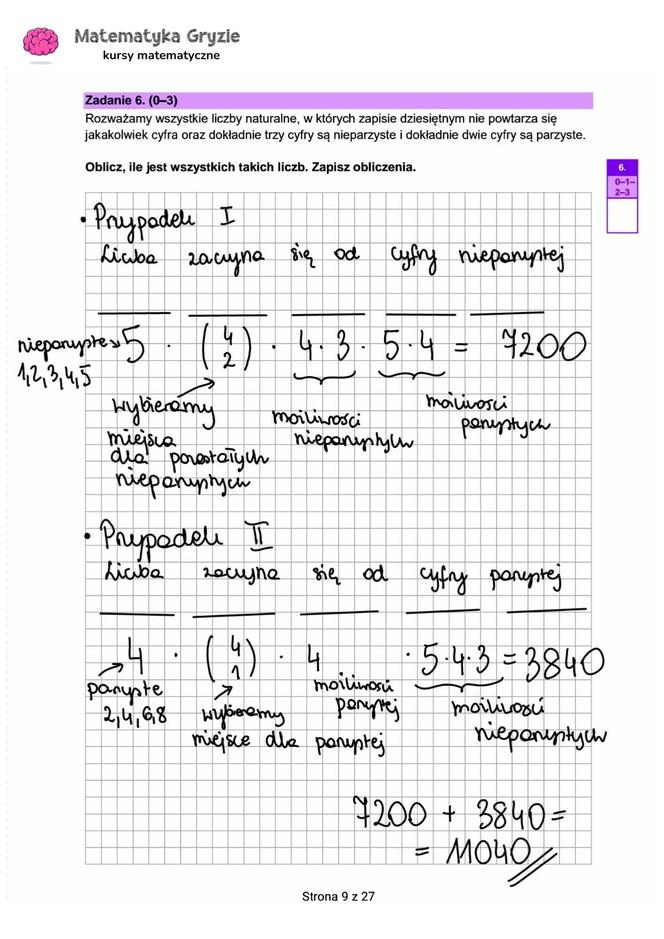 Matematyka Gryzie
kursy matematyczne
Zadanie 6. (0–3)
Rozważamy wszystkie liczby naturalne, w których zapisie dziesiętnym nie powtarza się
jakakolwiek cyfra oraz dokładnie trzy cyfry są nieparzyste i dokładnie dwie cyfry są parzyste.
Oblicz, ile jest wszystkich takich liczb. Zapisz obliczenia.
6.
0–1–
2–3
• Przypadek I
Liczba zaczyna się od cyfry nieparzystej
nieparzyste 5 · (4 2) · 4·3 · 5·4 = 7200
1,2,3,4,5
wybieramy
miejsca
dla pozostałych
nieparzystych
możliwości
nieparzystych
możliwości
parzystych
• Przypadek II
Liczba zaczyna się od cyfry parzystej
4 · (4 1) · 4 · 5·4·3 = 3840
parzyste
2,4,6,8
wybieramy
miejsce dla parzystej
możliwości
parzystej
możliwości
nieparzystych
7200 + 3840 =
= 11040
Strona 9 z 27